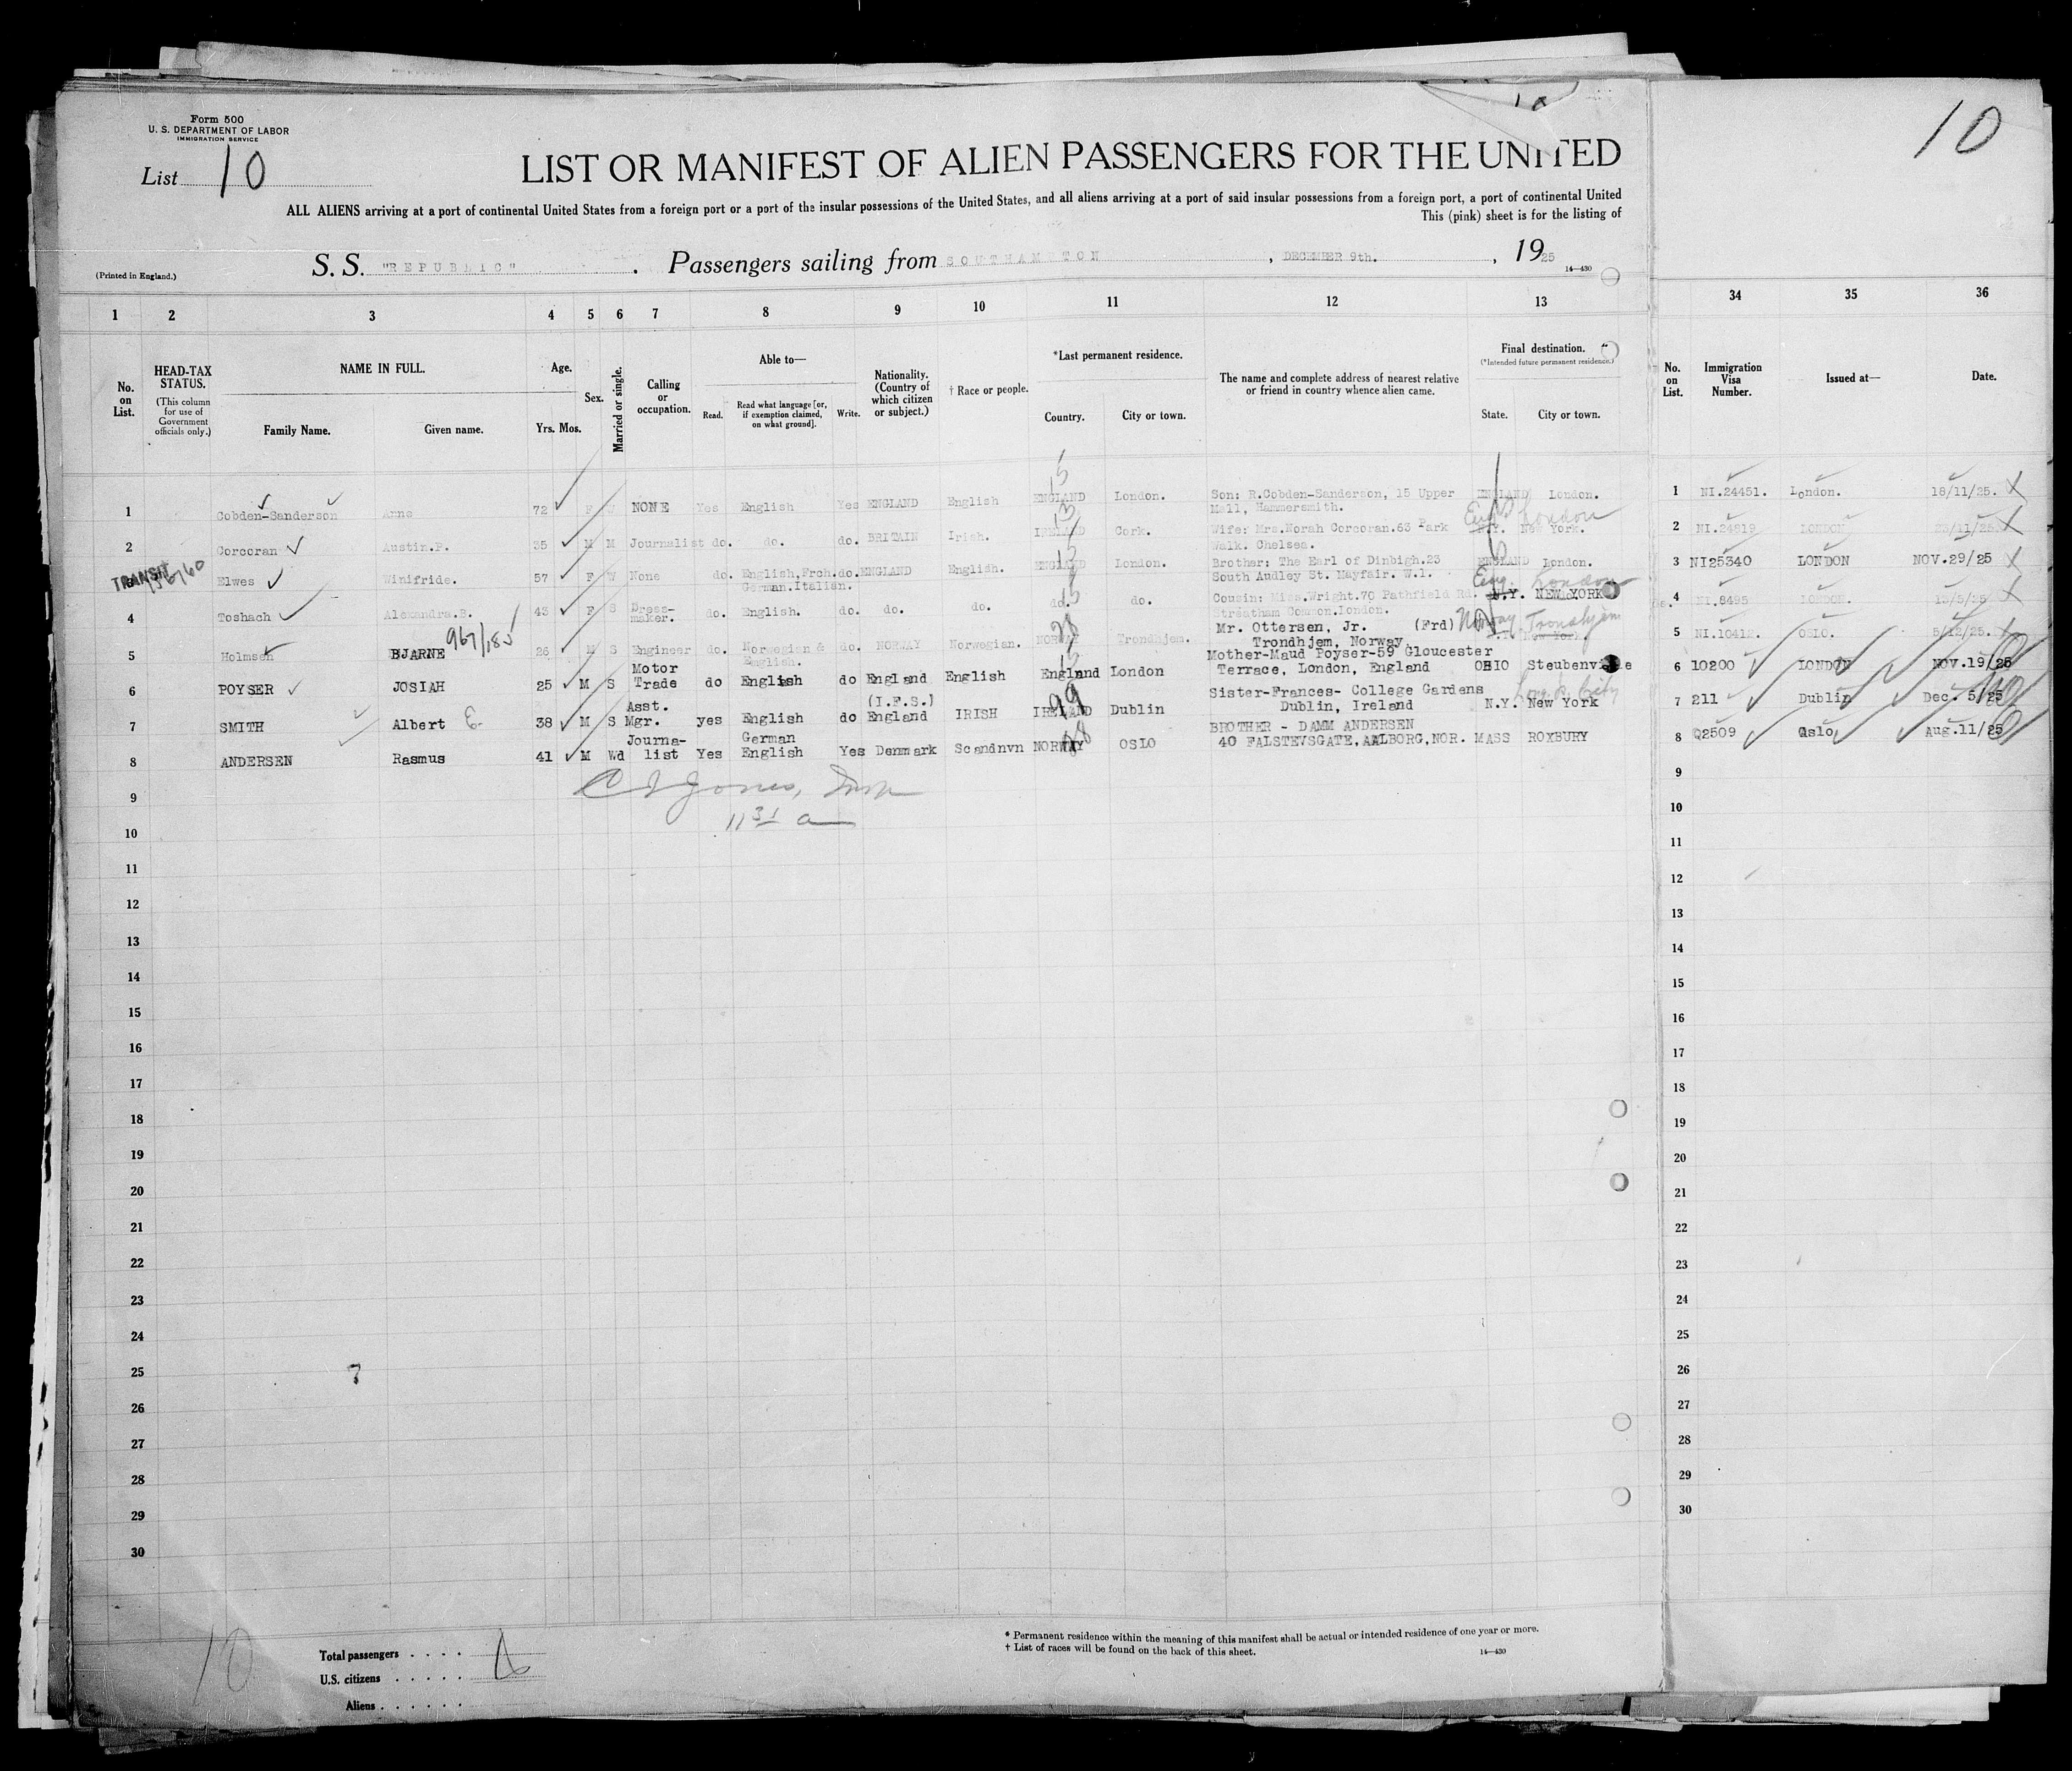 Form 500
U. S. DEPARTMENT OF LABOR
IMMIGRATION SERVICE
List 10
10
LIST OR MANIFEST OF ALIEN PASSENGERS FOR THE UNITED
ALL ALIENS arriving at a port of continental United States from a foreign port or a port of the insular possessions of the United States, and all aliens arriving at a port of said insular possessions from a foreign port, a port of continental United
This (pink) sheet is for the listing of
(Printed in England.)
S. S. "REPUBLIC" . Passengers sailing from SOUTHAMPTON , DECEMBER 9th. , 1925
14—430
1 2 3 4 5 6 7 8 9 10 11 12 13 34 35 36
No. on List.
HEAD-TAX STATUS.
(This column for use of Government officials only.)
NAME IN FULL.
Family Name. Given name.
Age.
Yrs. Mos.
Sex.
Married or single.
Calling or occupation.
Able to—
Read. Read what language [or, if exemption claimed, on what ground]. Write.
Nationality. (Country of which citizen or subject.)
† Race or people.
*Last permanent residence.
Country. City or town.
The name and complete address of nearest relative or friend in country whence alien came.
Final destination.
(*Intended future permanent residence.)
State. City or town.
No. on List.
Immigration Visa Number.
Issued at—
Date.
1 Cobden-Sanderson Anne 72 F W NONE Yes English Yes ENGLAND English ENGLAND London. Son: R.Cobden-Sanderson, 15 Upper Mall, Hammersmith. ENGLAND London. 1 NI.24451. London. 18/11/25.
2 Corcoran Austin.P. 35 M M Journalist do. do. do. BRITAIN Irish. IRELAND Cork. Wife: Mrs.Norah Corcoran.63 Park Walk. Chelsea. N.Y. New York. Eng. London 2 NI.24819 LONDON 23/11/25.
TRANSIT
3 Elwes Winifride. 57 F W None do. English,Frch. German.Italian. do. ENGLAND English. ENGLAND London. Brother: The Earl of Dinbigh.23 South Audley St. Mayfair. W.1. ENGLAND London. 3 NI25340 LONDON NOV.29/25
4 Toshach Alexandra.B. 43 F S Dress-maker. do. English. do. do. do. do. do. Cousin: Miss.Wright.70 Pathfield Rd. Streatham Common.London. N.Y. NEW YORK Eng. London 4 NI.8495 LONDON. 15/5/25
967/185
5 Holmsen BJARNE 26 M S Engineer do. Norwegian & English. do. NORWAY Norwegian. NORWAY Trondhjem. Mr. Ottersen, Jr. (Frd) Trondhjem, Norway Norway Trondhjem New York 5 NI.10412. OSLO. 5/12/25.
6 POYSER JOSIAH 25 M S Motor Trade do English do England English England London Mother-Maud Poyser-59 Gloucester Terrace, London, England OHIO Steubenville 6 10200 LONDON NOV.19/25
7 SMITH Albert E. 38 M S Asst. Mgr. yes English do (I.F.S.) England IRISH IRELAND Dublin Sister-Frances- College Gardens Dublin, Ireland N.Y. New York 7 211 Dublin Dec. 5/25
8 ANDERSEN Rasmus 41 M Wd Journa-list Yes German English Yes Denmark Scandnvn NORWAY OSLO BROTHER - DAMM ANDERSEN 40 FALSTEVSGATE, AALBORG, NOR. MASS ROXBURY 8 Q2509 Oslo Aug.11/25
C I Jones, Insp
9 9
10 10
11 11
12 12
13 13
14 14
15 15
16 16
17 17
18 18
19 19
20 20
21 21
22 22
23 23
24 24
25 25
26 26
27 27
28 28
29 29
30 30
10
Total passengers . . . .
U.S. citizens . . . . .
Aliens . . . . . .
* Permanent residence within the meaning of this manifest shall be actual or intended residence of one year or more.
† List of races will be found on the back of this sheet.
14—430